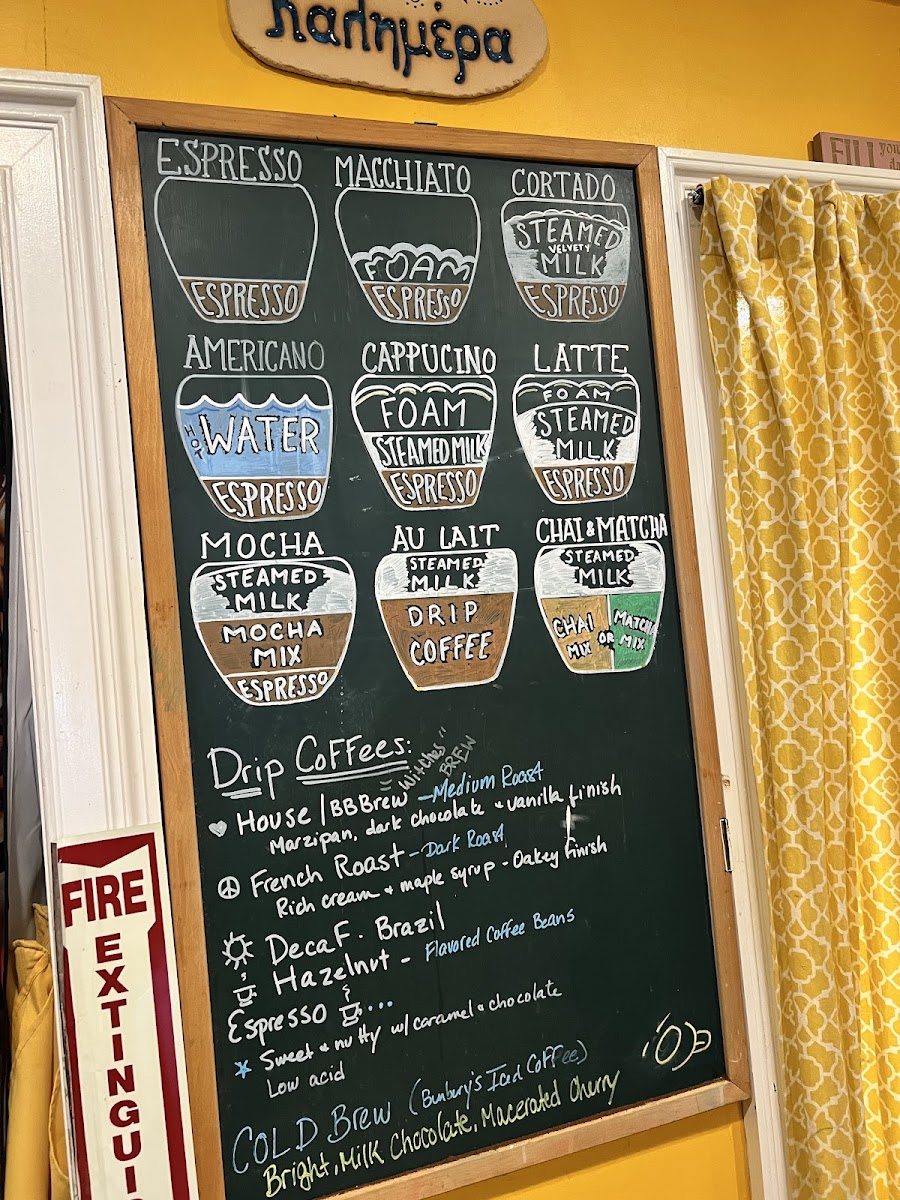 καλημέρα
FILL you
ESPRESSO
ESPRESSO
MACCHIATO
FOAM
ESPRESSO
CORTADO
STEAMED
VELVETY
MILK
ESPRESSO
AMERICANO
HOT WATER
ESPRESSO
CAPPUCINO
FOAM
STEAMED MILK
ESPRESSO
LATTE
FOAM
STEAMED
MILK
ESPRESSO
MOCHA
STEAMED
MILK
MOCHA
MIX
ESPRESSO
AU LAIT
STEAMED
MILK
DRIP
COFFEE
CHAI & MATCHA
STEAMED
MILK
CHAI
MIX
OR
MATCHA
MIX
Drip Coffees:
House / BBBrew "Witches" BREW - Medium Roast
Marzipan, dark chocolate + vanilla finish
French Roast - Dark Roast
Rich cream + maple syrup - Oakey finish
Decaf. Brazil
Hazelnut - Flavored Coffee Beans
Espresso ...
Sweet + nutty w/ caramel + chocolate
Low acid
COLD BREW (Bunbury's Iced Coffee)
Bright, Milk Chocolate, Macerated Cherry
FIRE
EXTINGUI